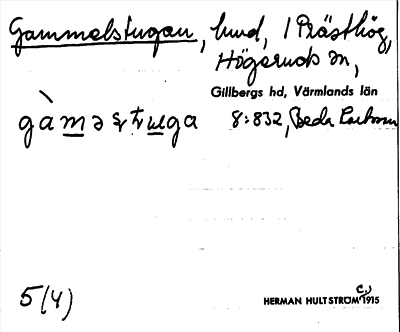 Gammelstugan, lund, 1 Prästhög,
Högeruds sn,
Gillbergs hd, Värmlands län
8:832, Beda
5(4)
HERMAN HULTSTRÖM c.) 1915